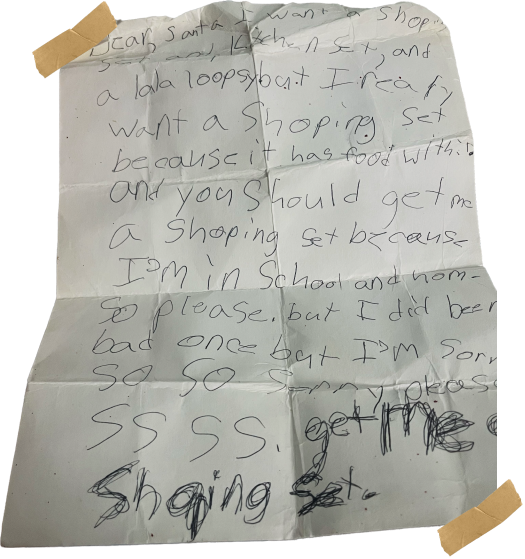 Dear, Santa I want a Shopi
Set, and, kitchen set, and
a lala loopsy but I realy
want a Shoping Set
because it has food with it
and you should get me
a Shoping set because
I'm in School and hom-
So please. but I did been
bad once but I'm Sorr
so so Sorry, please
SS SS. get me a
Shoping Set.